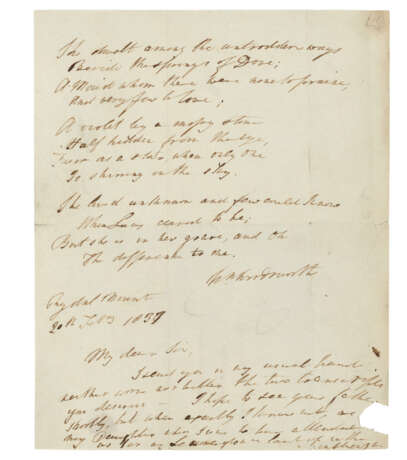 She dwelt among the untrodden ways
Beside the springs of Dove;
A Maid whom there were none to praise,
And very few to love;
A violet by a mossy stone
Half hidden from the eye,
Fair as a star when only one
Is shining in the sky.
She lived unknown and few could know
When Lucy ceased to be;
But she is in her grave, and Oh
The difference to me.
Wm Wordsworth
Rydal Mount
20th Feb 1837
My dear Sir,
I send you in my usual hand
neither worse nor better the two
you desire — I hope to see your father
shortly, but when exactly I know not, as
my